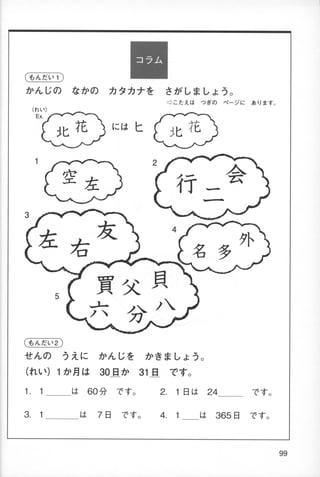 コラム
もんだい1
かんじの なかの カタカナを さがしましょう。
⇨こたえは つぎの ページに あります。
(れい)
Ex.
北 花 には ヒ 北 花
1
空 左
2
行 二 会
3
左 右 友
4
名 多 外
5
買 父 貝
六 分 八
もんだい2
せんの うえに かんじを かきましょう。
(れい) 1か月は 30日か 31日 です。
1. 1____は 60分 です。 2. 1日は 24____ です。
3. 1____は 7日 です。 4. 1__は 365日 です。
99